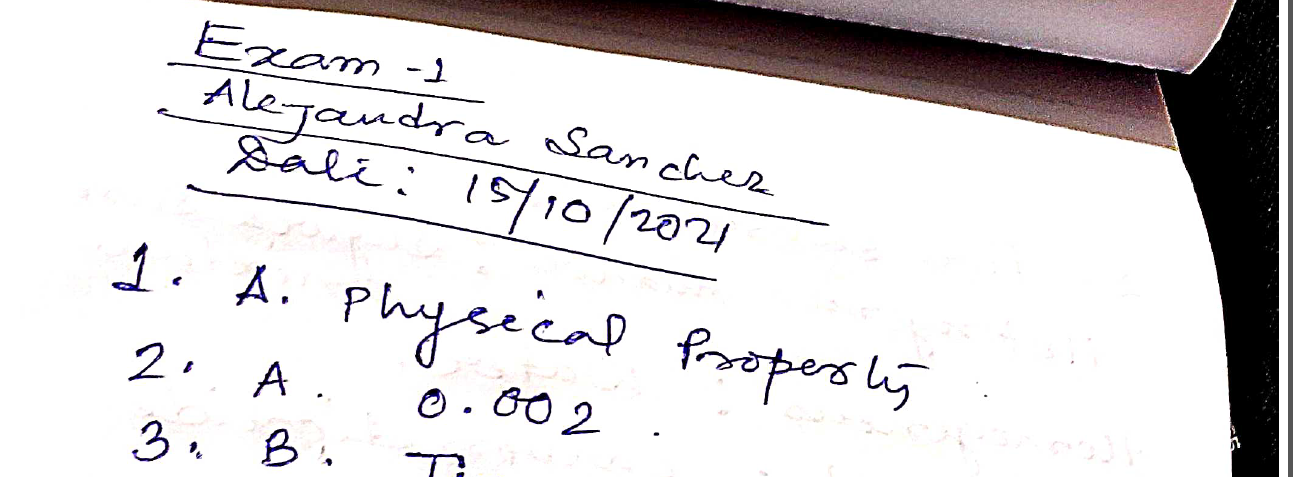 Exam -1
Alejandra Sanchez
Date: 15/10/2021
1. A. Physical Property.
2. A. 0.002.
3. B.